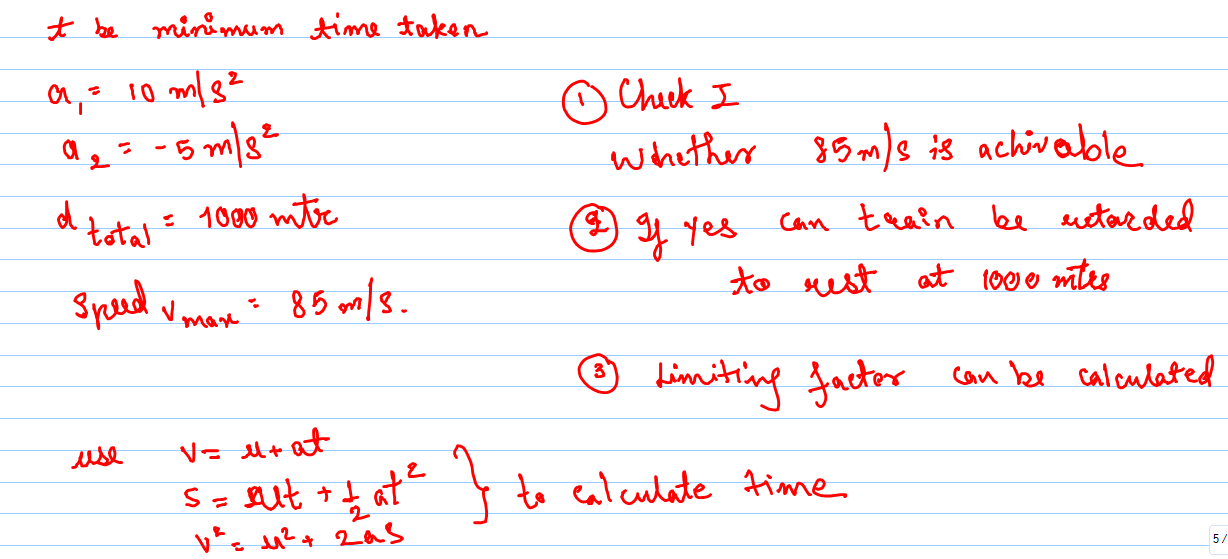 t be minimum time taken
a₁ = 10 m/s²
a₂ = -5 m/s²
d total = 1000 mtr
Speed v max = 85 m/s.
① Check I
Whether 85m/s is achivable
② If yes can train be retarded
to rest at 1000 mtrs
③ Limiting factor can be calculated
use v = u + at
s = ut + 1/2 at² } to calculate time
v² = u² + 2as
5/